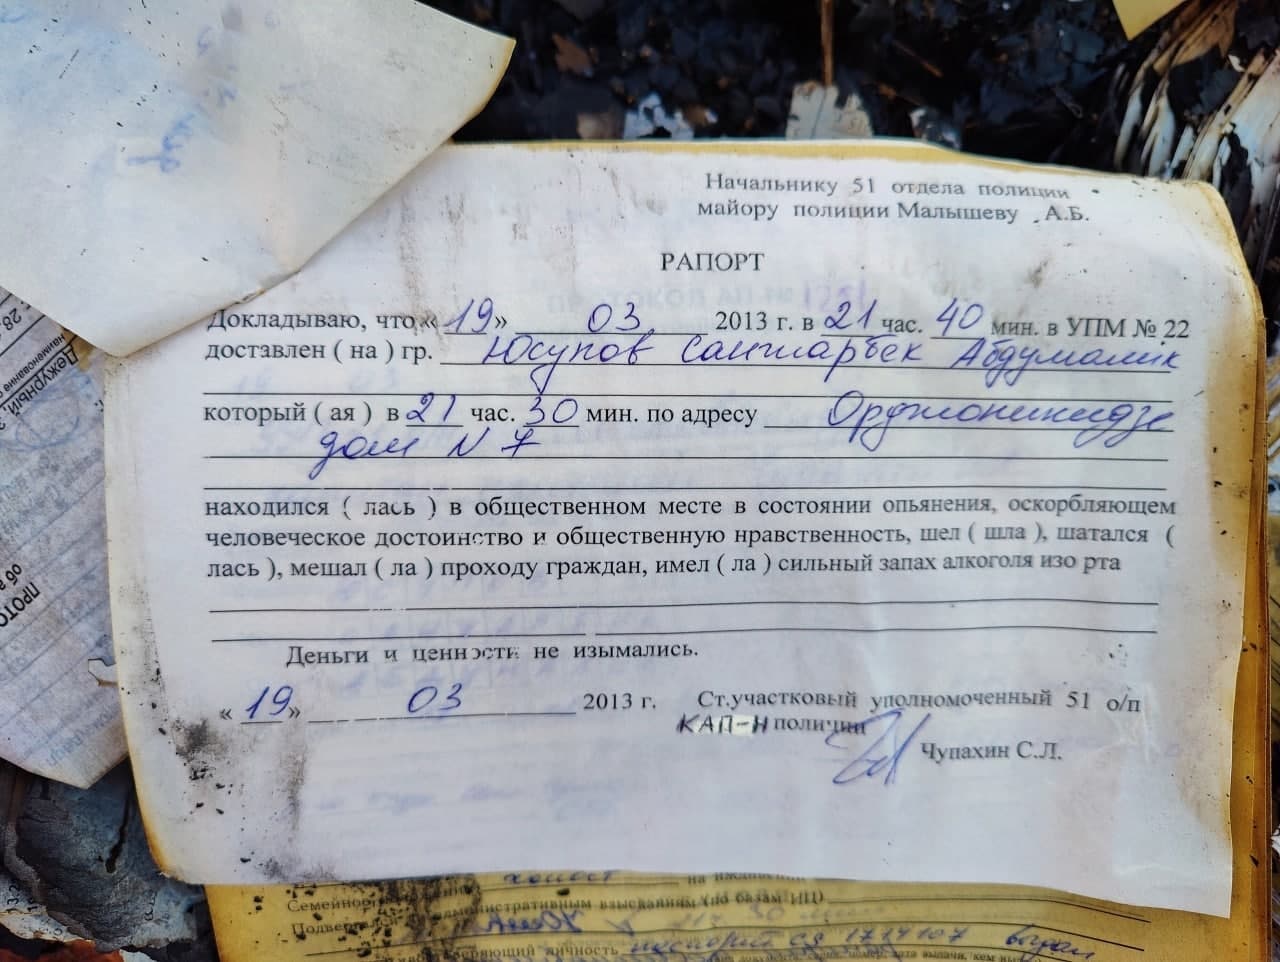 Начальнику 51 отдела полиции
майору полиции Малышеву А.Б.
РАПОРТ
Докладываю, что « 19 » 03 2013 г. в 21 час. 40 мин. в УПМ № 22
доставлен ( на ) гр. Юсупов Санжарбек Абдумалик
который ( ая ) в 21 час. 30 мин. по адресу Орджоникидзе
дом N 7
находился ( лась ) в общественном месте в состоянии опьянения, оскорбляющем
человеческое достоинство и общественную нравственность, шел ( шла ), шатался (
лась ), мешал ( ла ) проходу граждан, имел ( ла ) сильный запах алкоголя изо рта
Деньги и ценности не изымались.
« 19 » 03 2013 г. Ст.участковый уполномоченный 51 о/п
КАП-Н полиции
Чупахин С.Л.
холост
административным взысканиям (по базам ИЦ)
личность паспорт СЯ 1714107 выдан
Дежурный
ПРОТО